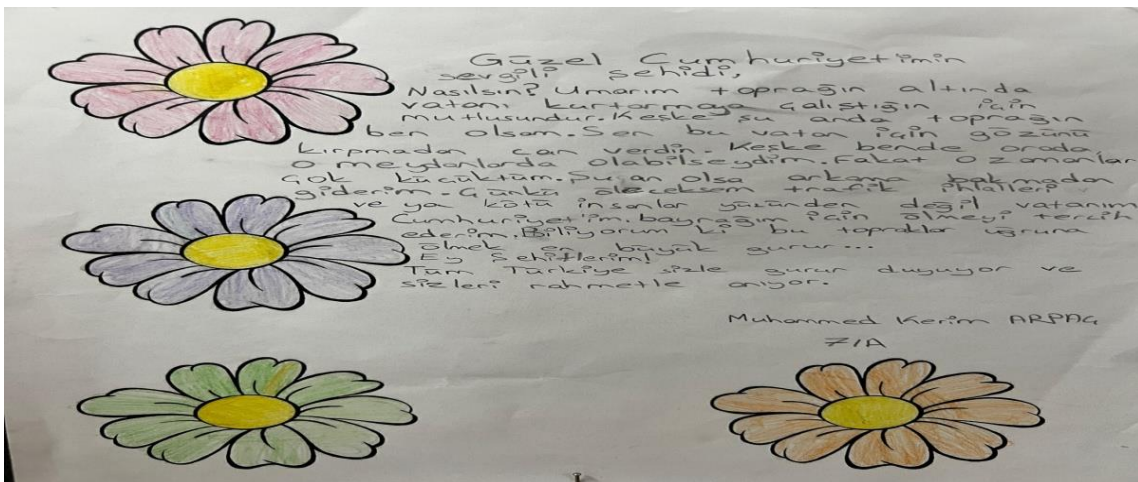 Güzel Cumhuriyetimin
sevgili şehidi,
Nasılsın? Umarım toprağın altında
vatanı kurtarmaya çalıştığın için
mutlusundur. Keşke şu anda toprağın
ben olsam. Sen bu vatan için gözünü
kırpmadan can verdin. Keşke bende orada
o meydanlarda olabilseydim. Fakat o zamanlar
çok küçüktüm. Şu an olsa arkama bakmadan
giderim. Çünkü öleceksem trafik ihlalleri
ve ya kötü insanlar yüzünden değil vatanım
Cumhuriyet'im, bayrağım için ölmeyi tercih
ederim. Biliyorum ki bu topraklar uğruna
ölmek en büyük gurur...
Ey Şehitlerim!
Tüm Türkiye sizle gurur duyuyor ve
sizleri rahmetle anıyor.
Muhammed Kerim ARPAG
7/A